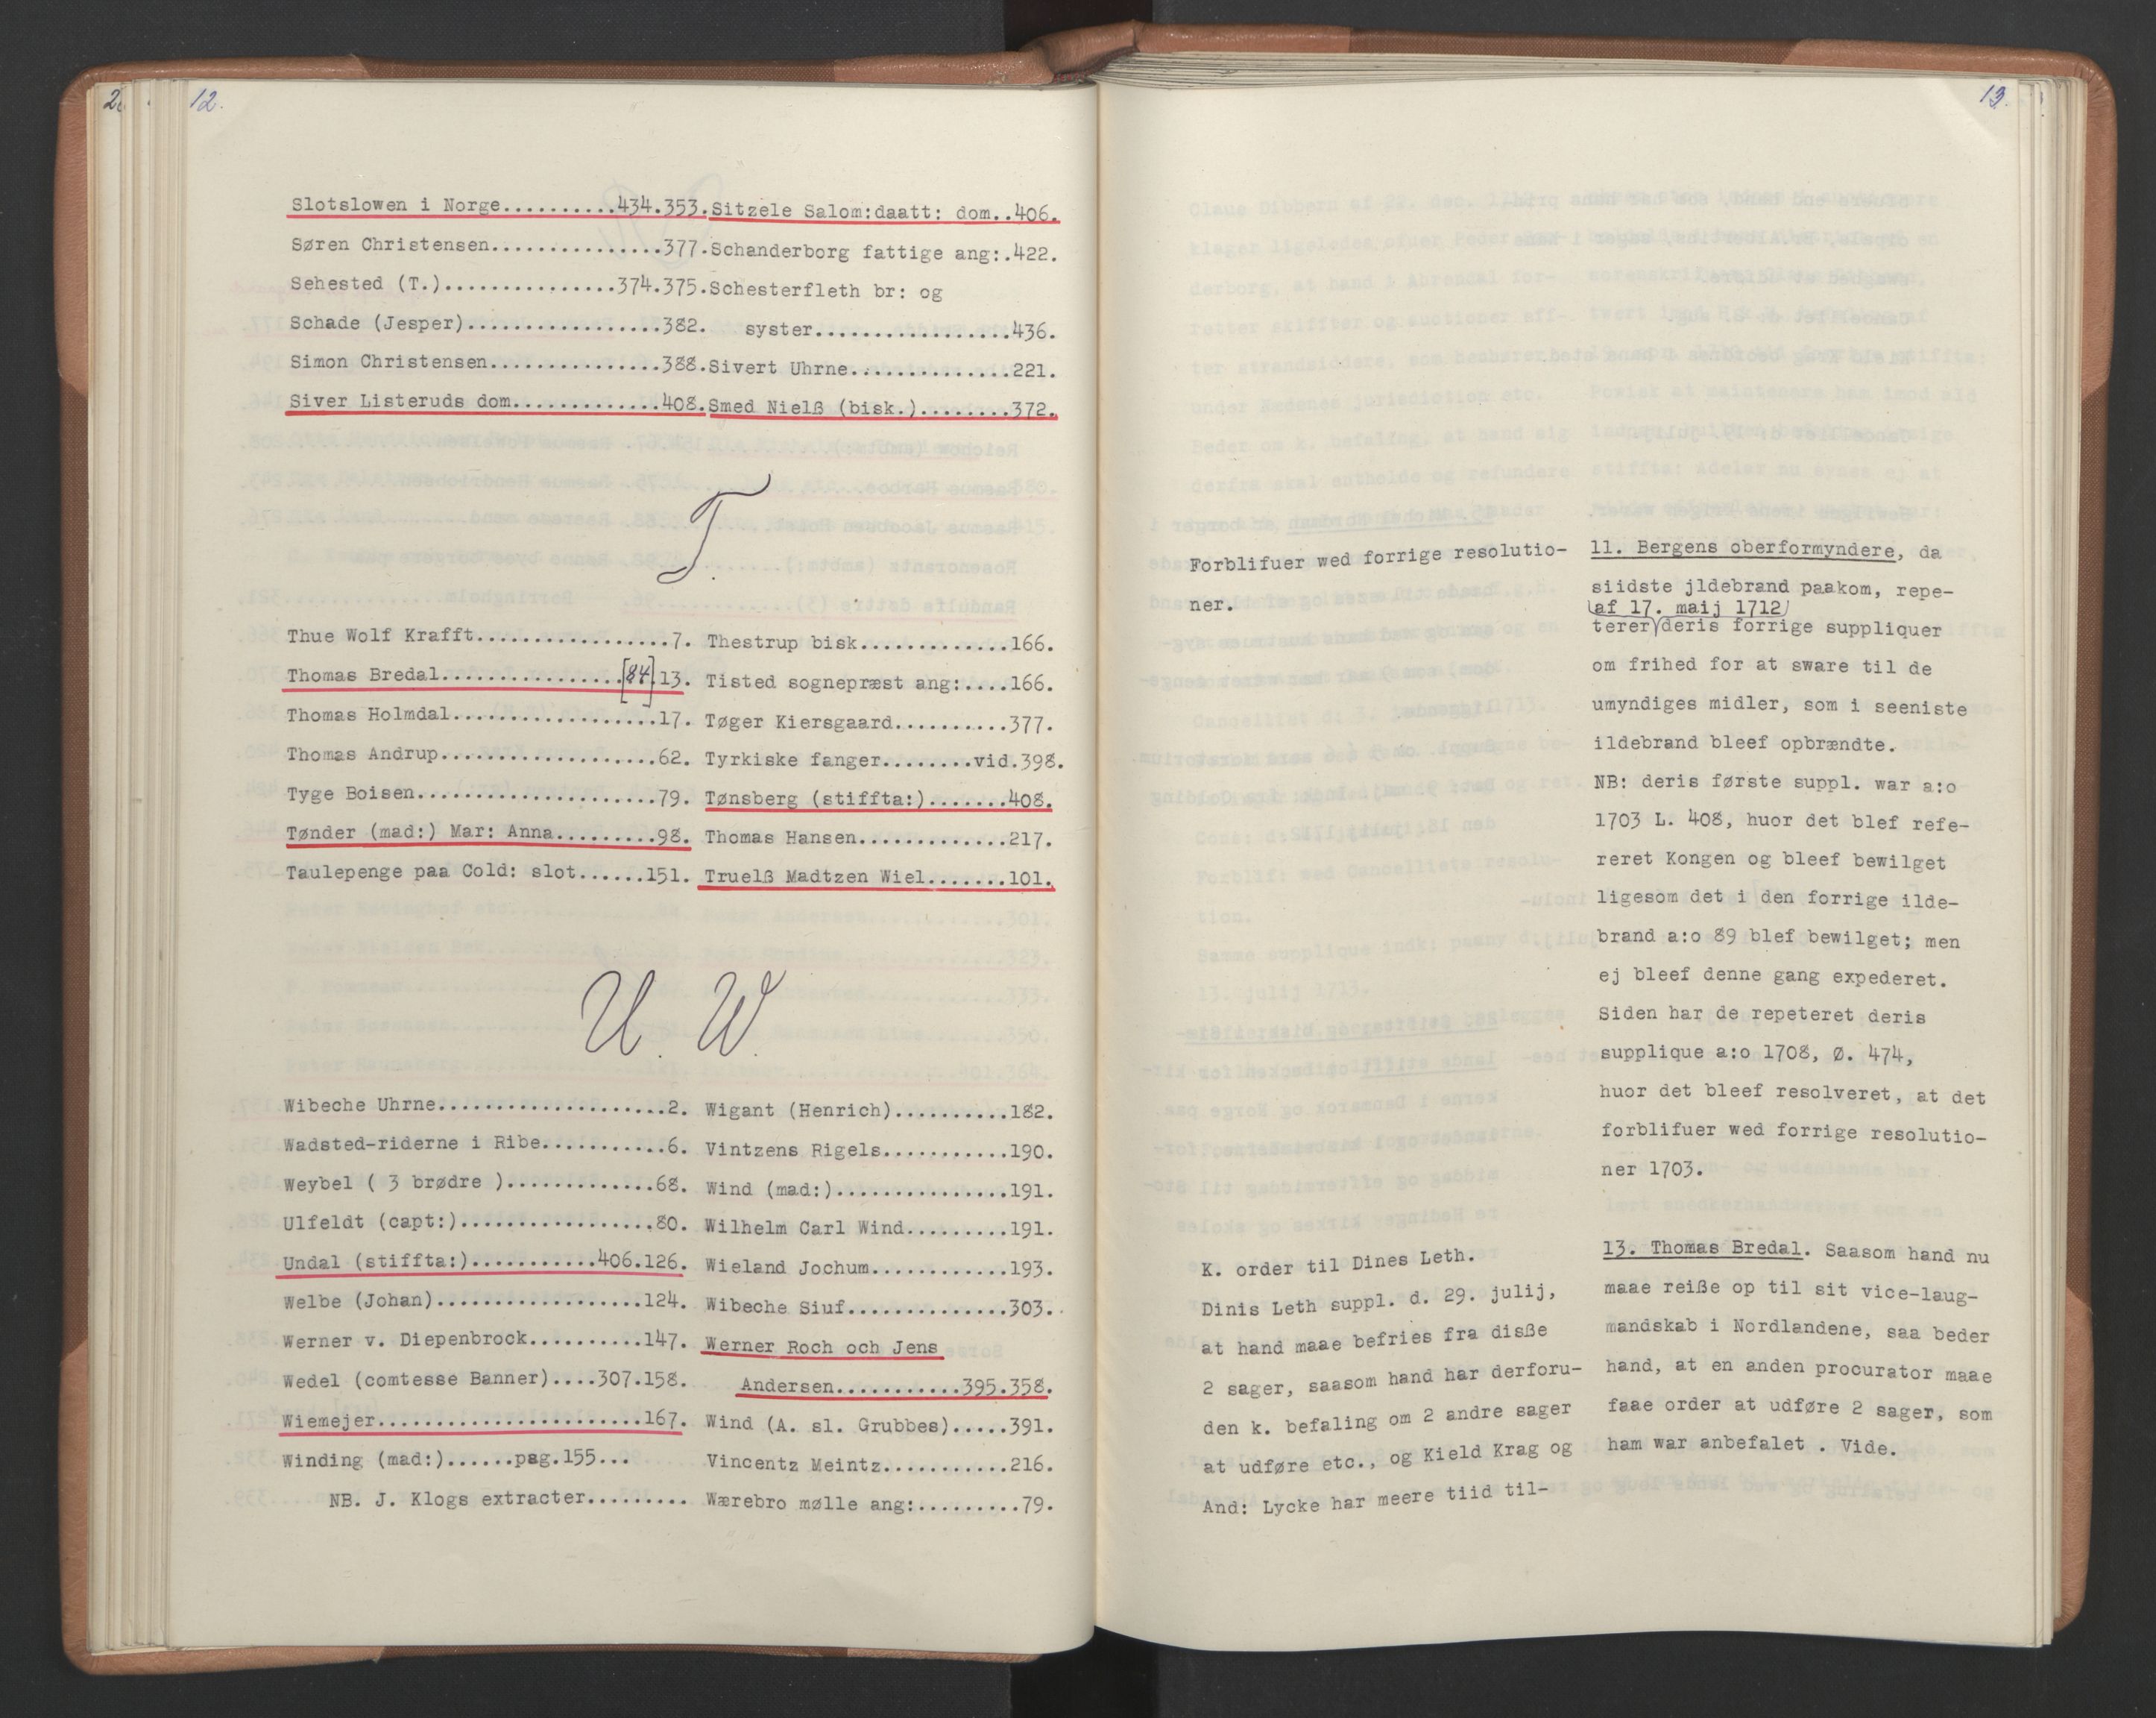 2.
12.
Slotslowen i Norge..........434.353.
Søren Christensen...............377.
Sehested (T.)...............374.375.
Schade (Jesper).................382.
Simon Christensen...............388.
Siver Listeruds dom.............408.
Sitzele Salom:daatt: dom..406.
Schanderborg fattige ang:.422.
Schesterfleth br: og
syster..................436.
Sivert Uhrne..............221.
Smed Nielß (bisk.)........372.
T.
Thue Wolf Krafft.................7.
Thomas Bredal................[84].13.
Thomas Holmdal..................17.
Thomas Andrup...................62.
Tyge Boisen.....................79.
Tønder (mad:) Mar: Anna.........98.
Taulepenge paa Cold: slot......151.
Thestrup bisk.............166.
Tisted sognepræst ang:....166.
Tøger Kiersgaard..........377.
Tyrkiske fanger........vid.398.
Tønsberg (stiffta:).......408.
Thomas Hansen.............217.
Truelß Madtzen Wiel.......101.
U. W.
Wibeche Uhrne....................2.
Wadsted-riderne i Ribe...........6.
Weybel ( 3 brødre ).............68.
Ulfeldt (capt:).................80.
Undal (stiffta:)...........406.126.
Welbe (Johan)..................124.
Werner v. Diepenbrock..........147.
Wedel (comtesse Banner)....307.158.
Wiemejer.......................167.
Winding (mad:)......pag.155...
NB. J. Klogs extracter.........
Wigant (Henrich)..........182.
Vintzens Rigels...........190.
Wind (mad:)...............191.
Wilhelm Carl Wind.........191.
Wieland Jochum............193.
Wibeche Siuf..............303.
Werner Roch och Jens
Andersen...........395.358.
Wind (A. sl. Grubbes).....391.
Vincentz Meintz...........216.
Wærebro mølle ang:.........79.
13.
Forblifuer wed forrige resolutio-
ner.
K. order til Dines Leth.
Dinis Leth suppl. d. 29. julij,
at hand maae befries fra disße
2 sager, saasom hand har derforu-
den k. befaling om 2 andre sager
at udføre etc., og Kield Krag og
And: Lycke har meere tiid til-
11. Bergens oberformyndere, da
siidste jldebrand paakom, repe-
af 17. maij 1712
terer deris forrige suppliquer
om frihed for at sware til de
umyndiges midler, som i seeniste
ildebrand bleef opbrændte.
NB: deris første suppl. war a:o
1703 L. 408, huor det blef refe-
reret Kongen og bleef bewilget
ligesom det i den forrige ilde-
brand a:o 89 blef bewilget; men
ej bleef denne gang expederet.
Siden har de repeteret deris
supplique a:o 1708, Ø. 474,
huor det bleef resolveret, at det
forblifuer wed forrige resolutio-
ner 1703.
13. Thomas Bredal. Saasom hand nu
maae reiße op til sit vice-laug-
mandskab i Nordlandene, saa beder
hand, at en anden procurator maae
faae order at udføre 2 sager, som
ham war anbefalet . Vide.